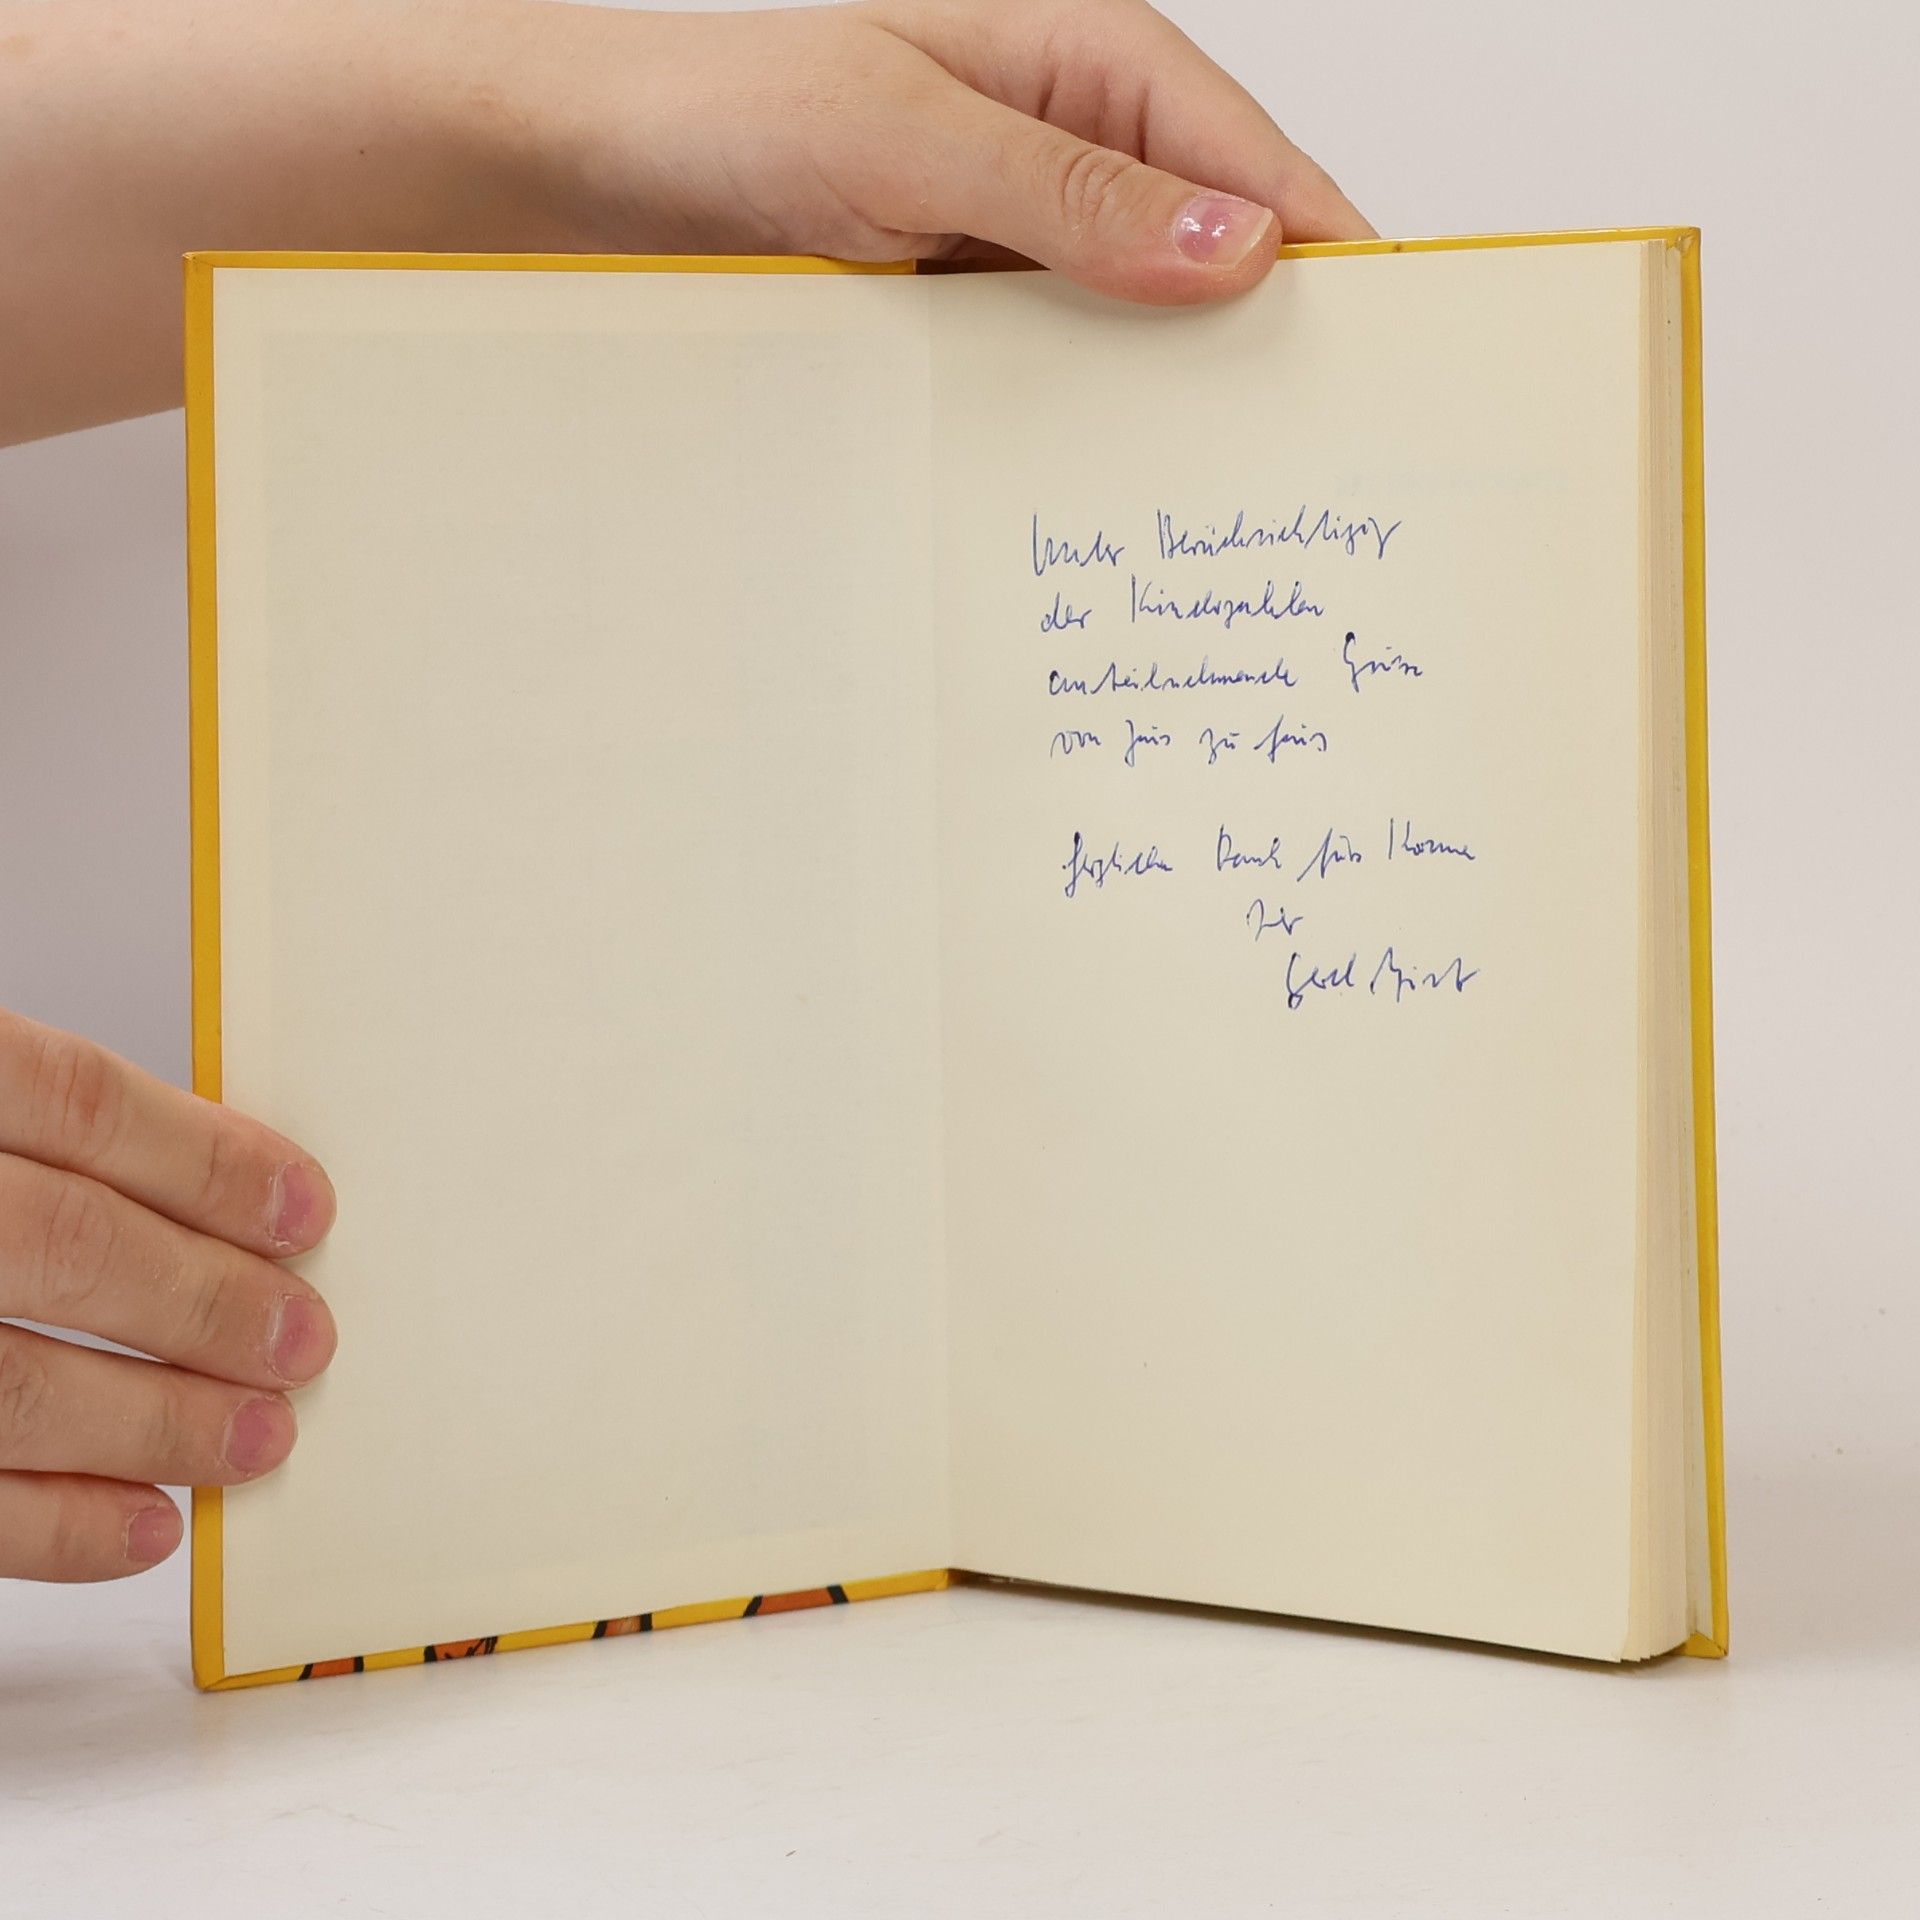 Unter Berücksichtigung
der Kinderzahlen
anteilnehmende Grüße
von Haus zu Haus
Herzlichen Dank fürs Kommen
Ihr
Gerd